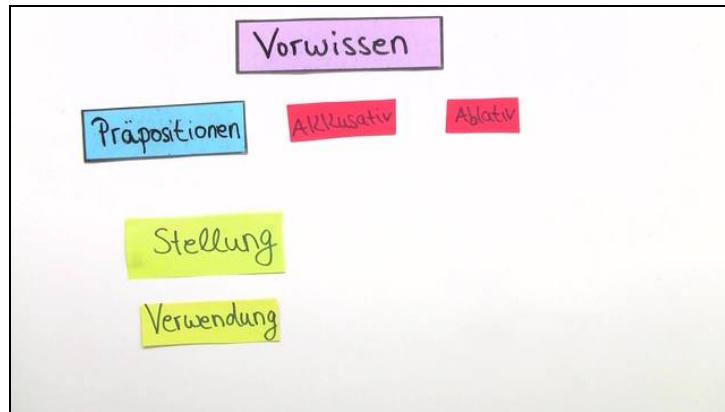 Vorwissen
Präpositionen
Akkusativ
Ablativ
Stellung
Verwendung